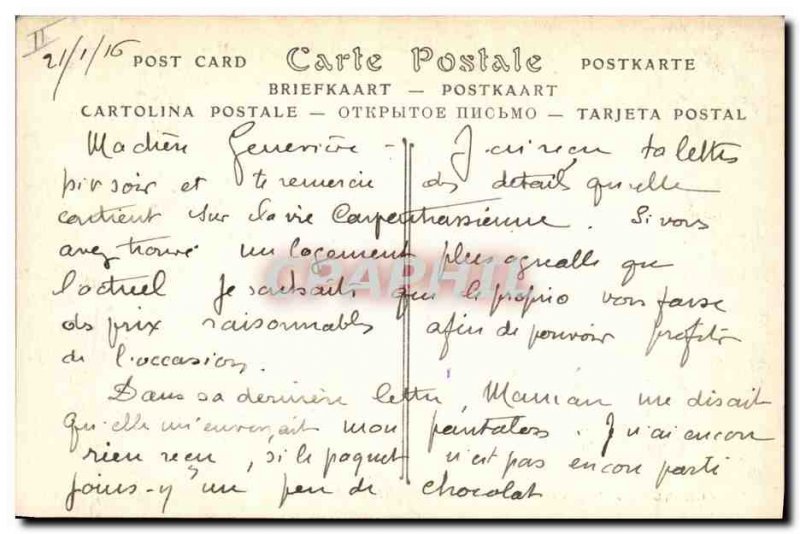 II
21/1/16
POST CARD Carte Postale POSTKARTE
BRIEFKAART — POSTKAART
CARTOLINA POSTALE — ОТКРЫТОЕ ПИСЬМО — TARJETA POSTAL
Ma chère Geneviève - J'ai reçu ta lettre
hier soir et te remercie des détails qu'elle
contient sur la vie Carpentrassienne. Si vous
avez trouvé un logement plus agréable que
l'actuel je souhaite que le proprio vous fasse
des prix raisonnables afin de pouvoir profiter
de l'occasion.
Dans sa dernière lettre, Maman me disait
qu'elle m'envoyait mon pantalon. Je n'ai encore
rien reçu, si le paquet n'est pas encore parti
joins-y un peu de chocolat
CPAPHIL